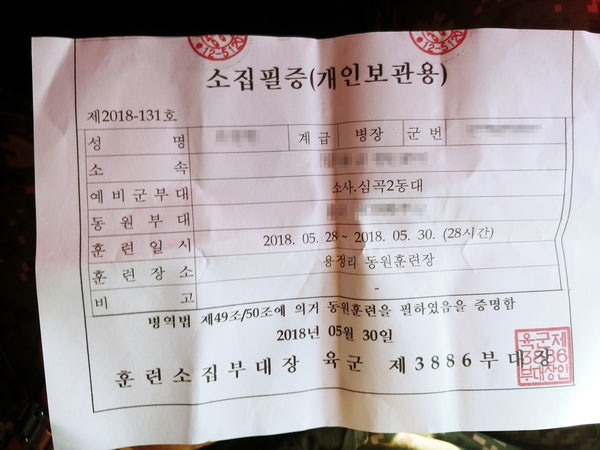 12-5120
12-5120
소집필증(개인보관용)
제2018-131호
성 명 계급 병장 군번
소 속
예비군부대 소사.심곡2동대
동원부대
훈련일시 2018. 05. 28 ~ 2018. 05. 30. (28시간)
훈련장소 용정리 동원훈련장
비 고 -
병역법 제49조/50조에 의거 동원훈련을 필하였음을 증명함
2018년 05월 30일
훈련소집부대장 육군 제3886부대장
육군제
3886
부대장인